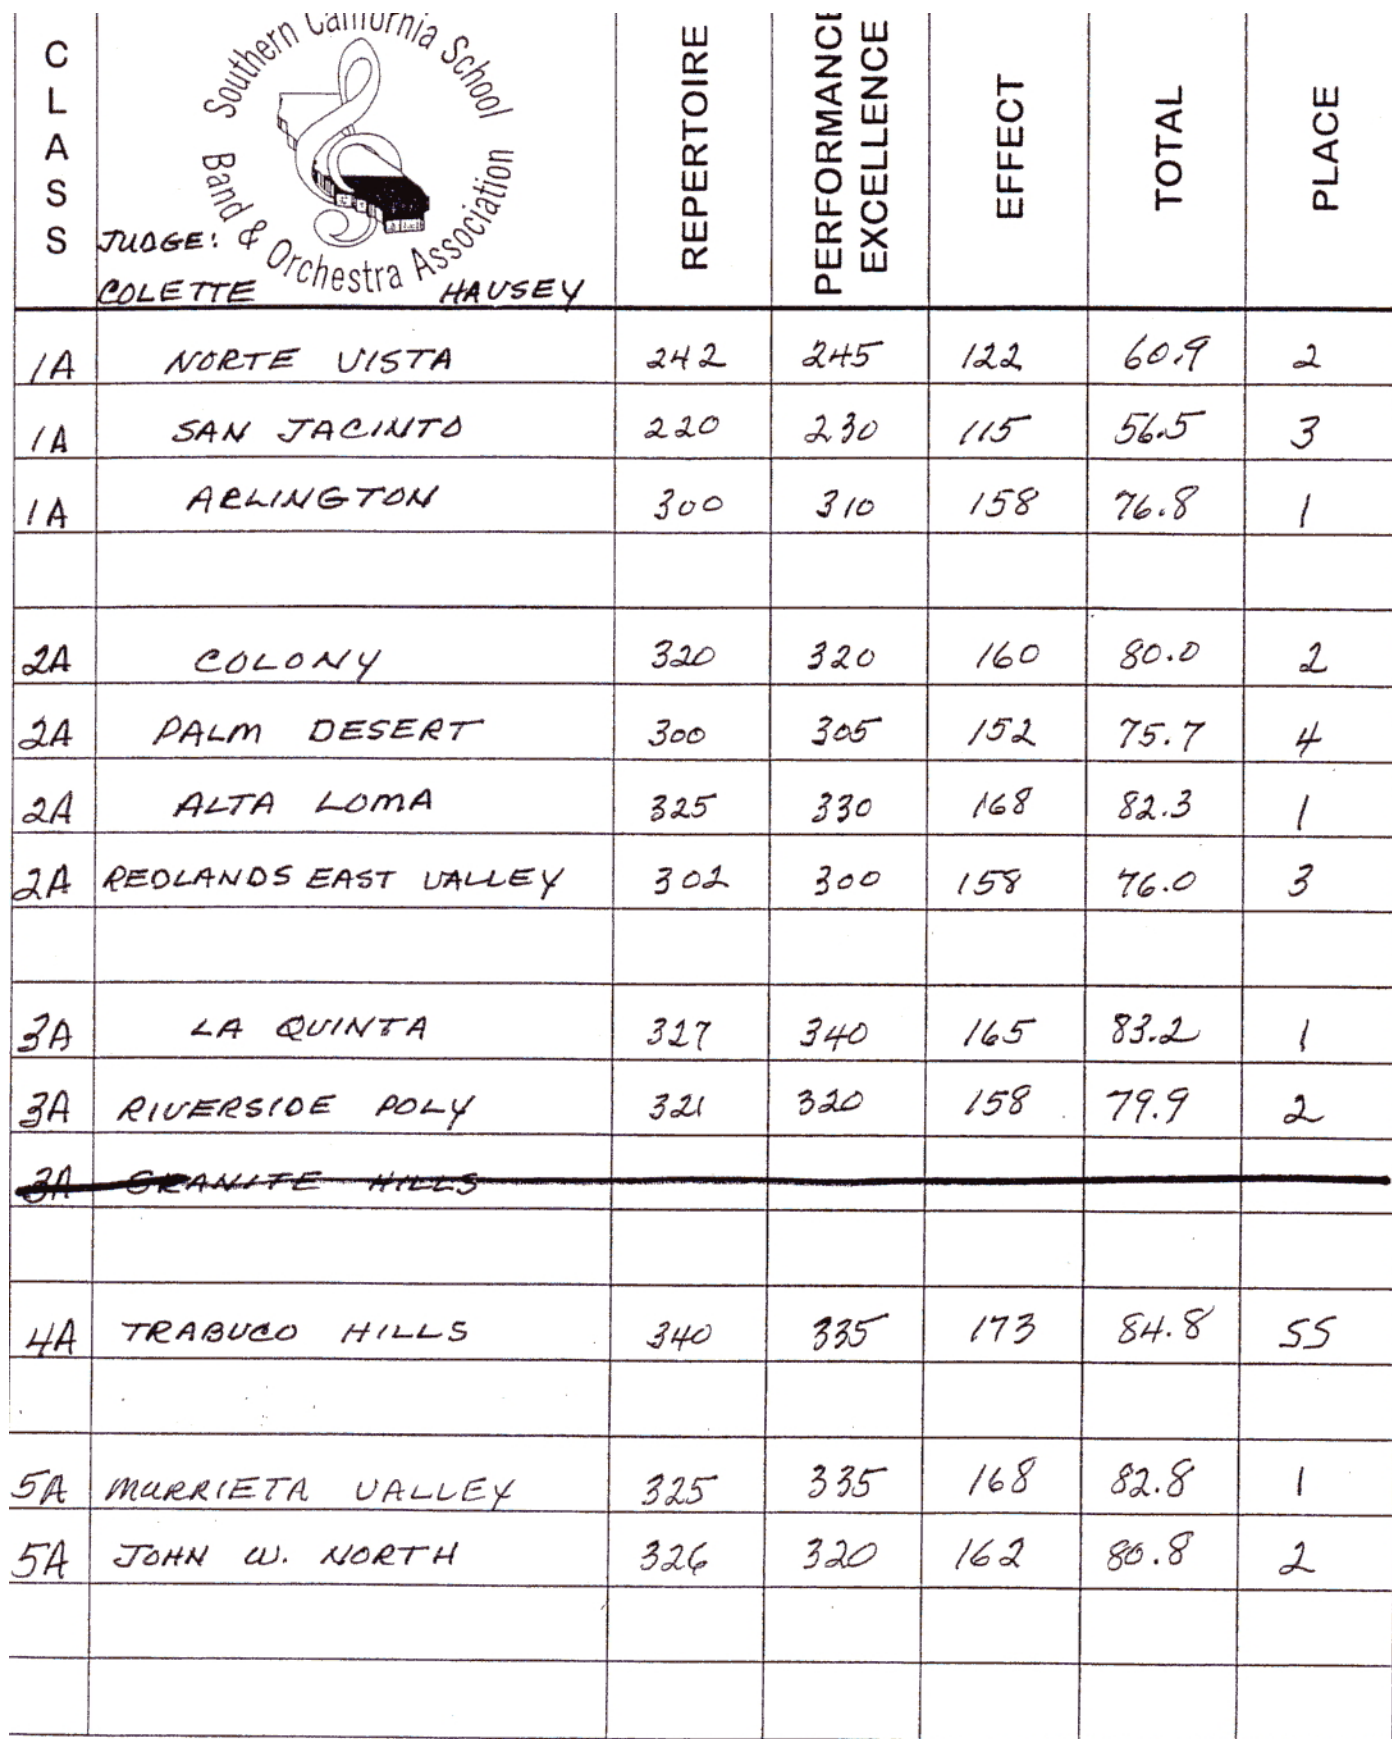 CLASS
Southern California School
Band & Orchestra Association
JUDGE:
COLETTE HAUSEY
REPERTOIRE
PERFORMANCE
EXCELLENCE
EFFECT
TOTAL
PLACE
1A NORTE VISTA 242 245 122 60.9 2
1A SAN JACINTO 220 230 115 56.5 3
1A ARLINGTON 300 310 158 76.8 1
2A COLONY 320 320 160 80.0 2
2A PALM DESERT 300 305 152 75.7 4
2A ALTA LOMA 325 330 168 82.3 1
2A REDLANDS EAST VALLEY 302 300 158 76.0 3
3A LA QUINTA 327 340 165 83.2 1
3A RIVERSIDE POLY 321 320 158 79.9 2
3A GRANITE HILLS
4A TRABUCO HILLS 340 335 173 84.8 SS
5A MURRIETA VALLEY 325 335 168 82.8 1
5A JOHN W. NORTH 326 320 162 80.8 2